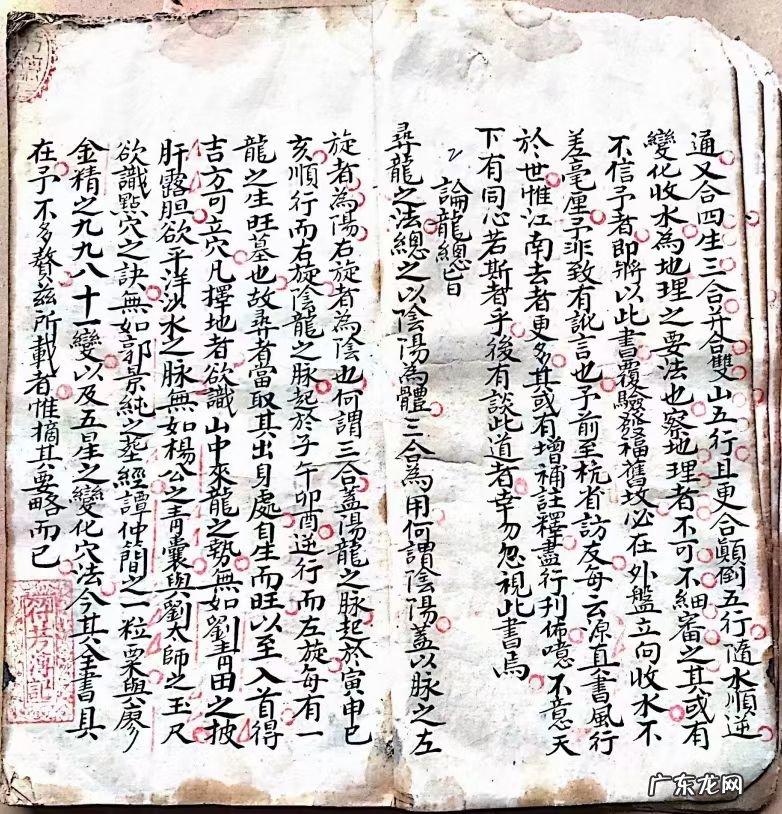 通又合四生三合并合雙山五行且更合顛倒五行隨水順逆
變化收水為地理之要法也察地理者不可不細審之其或有
不信予者即將以此書覆驗發福舊坟必在外盤立向收水不
差毫厘予非致有訛言也予前至杭省訪友每云源真書風行
於世惟江南去者更多其或有增補註釋盡行刊佈噫不意天
下有同心若斯者乎後有談此道者幸勿忽視此書焉
論龍總旨
尋龍之法總之以陰陽為體三合為用何謂陰陽蓋以脉之左
旋者為陽右旋者為陰也何謂三合蓋陽龍之脉起於寅申巳
亥順行而右旋陰龍之脉起於子午卯酉逆行而左旋每有一
龍之生旺墓也故尋者當取其出身處自生而旺以至入首得
吉方可立穴凡擇地者欲識山中來龍之勢無如劉青田之披
肝露胆欲平洋沙水之脉無如楊公之青囊與劉太師之玉尺
欲識點穴之訣無如郭景純之塟經譚仲簡之一粒粟與廖
金精之九九八十一變以及五星之變化穴法今其全書具
在予不多贅茲所載者惟摘其要略而已
芳傳記
广东龙网